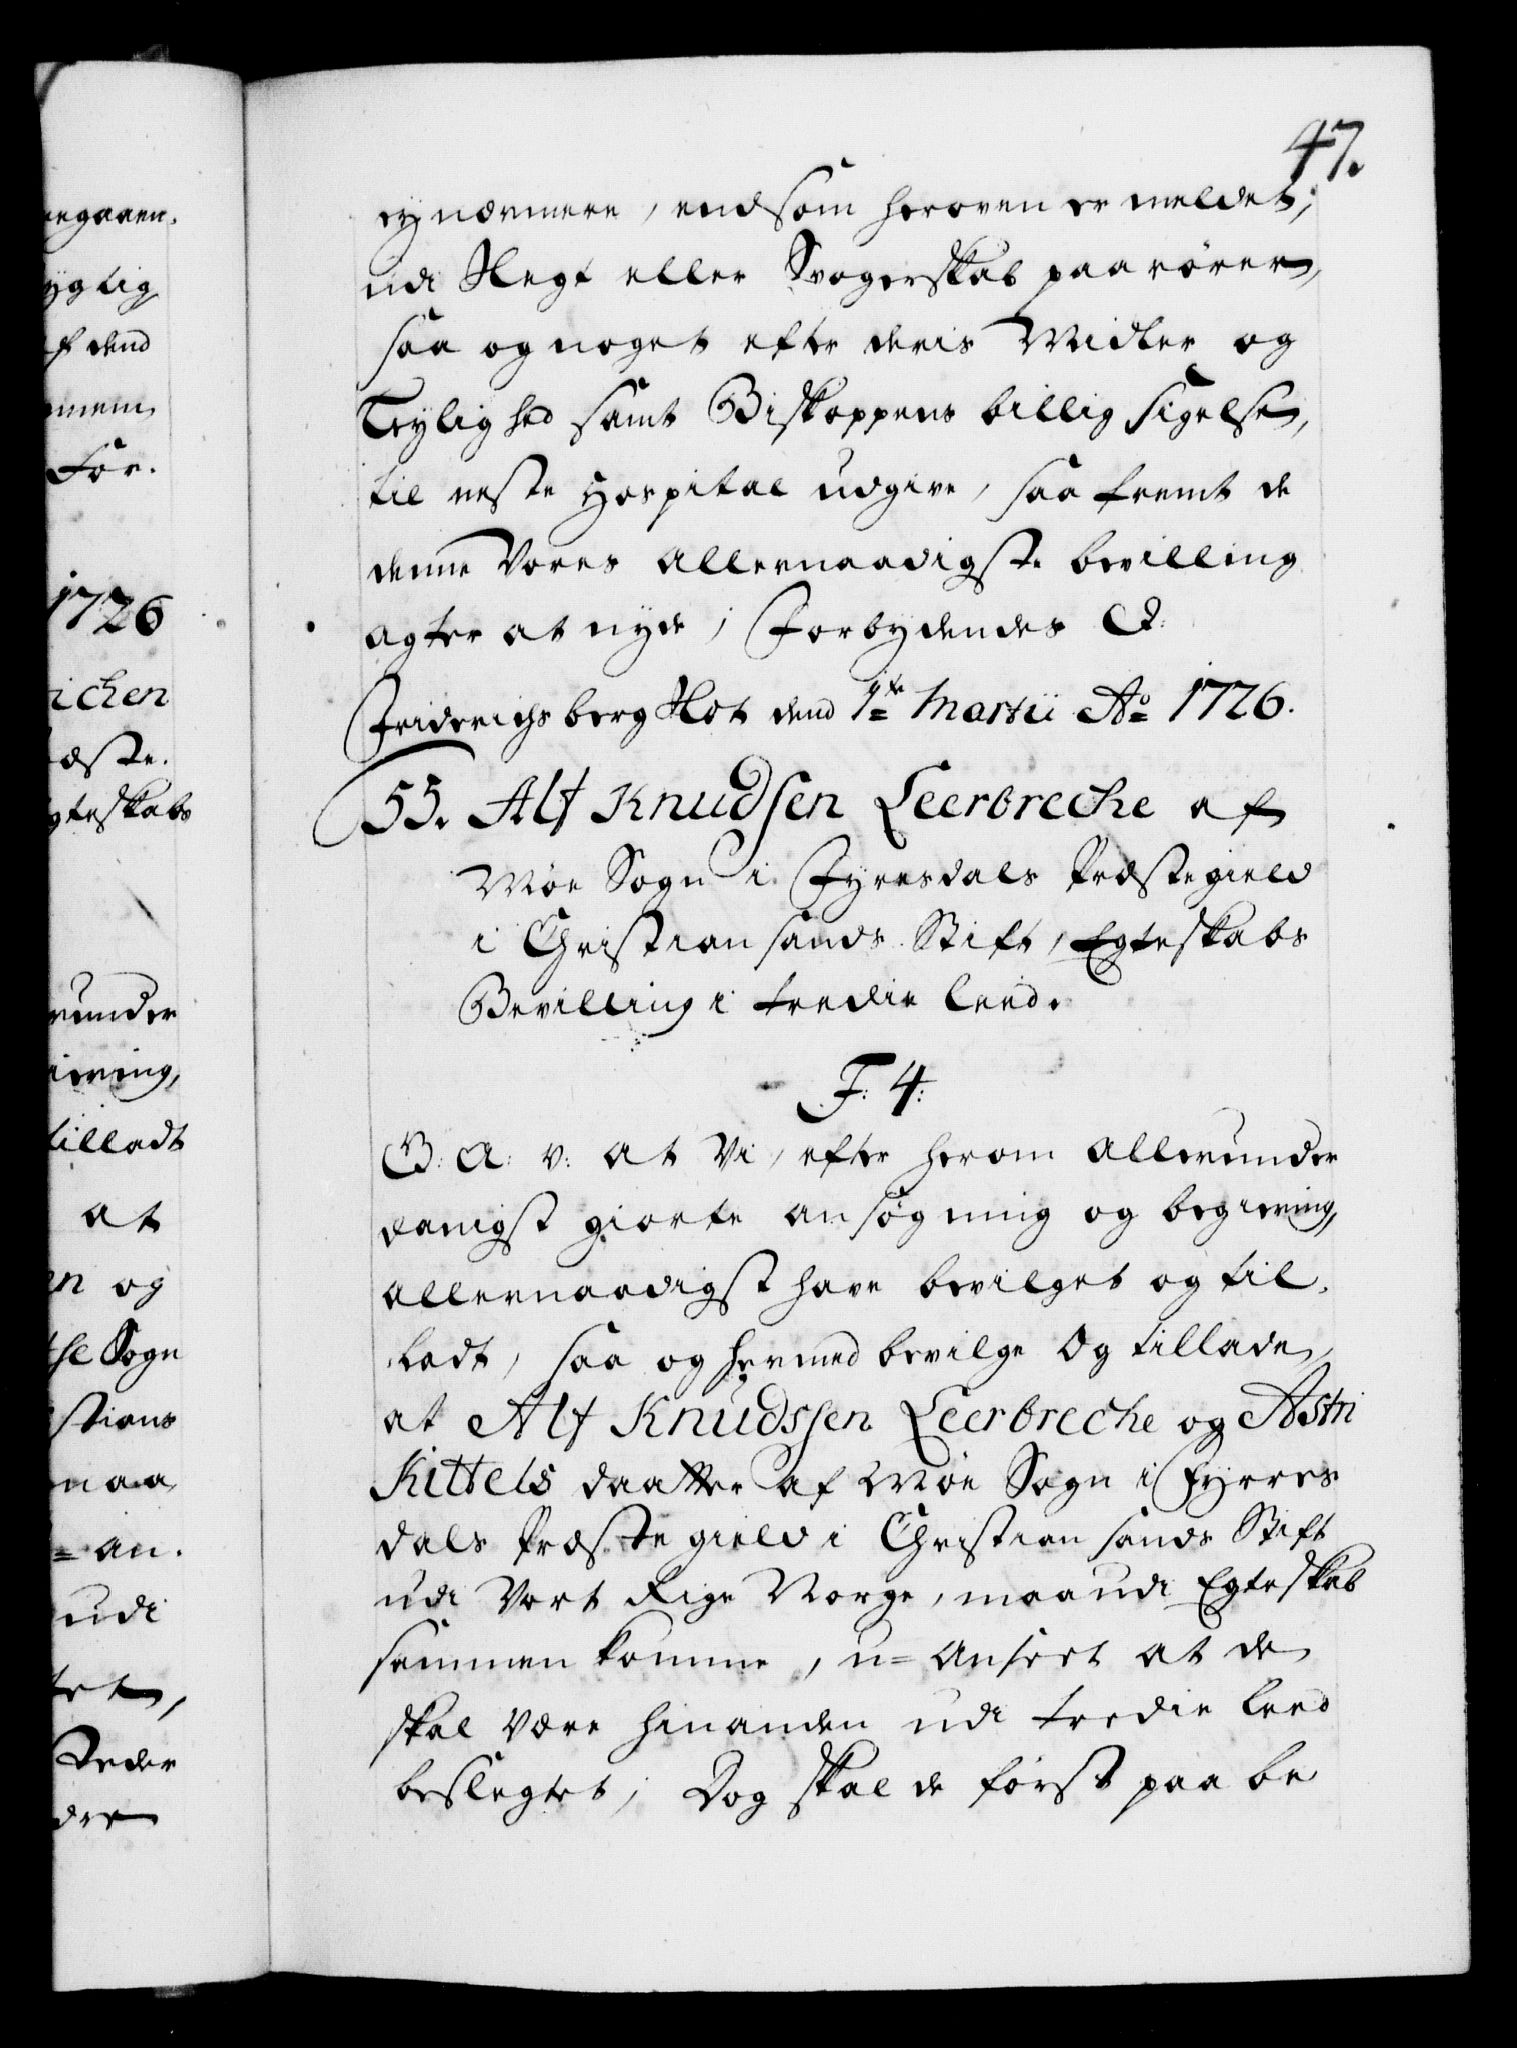 47.
ey nærmere, end som heroven er meldet;
udi Slegt eller Svogerskab paarører,
saa og noget efter deris Midler og
Leylighed samt Biskoppens billig sigelse,
til neste Hospital udgive, saa fremt de
denne Vores allernaadigste bevilling
agter at nyde; Forbydendes &:
Friderichsberg Slot dend 1te Martii Ao 1726.
55. Alf Knudsen Leerbreche af
Moe Sogn i Fyresdals Præstegield
i Christiansands Stift, Egteskabs
Bevilling i tredie Leed.
F: 4:
G: A: v: at Vi, efter herom allerunder
danigst giorte ansøgning og begiering,
allernaadigst have bevilget og til-
ladt, saa og hermed bevilge og tillade,
at Alf Knudssen Leerbreche og Astri
Kittels daatter af Moe Sogn i Fyrres
dals Præstegield i Christiansands Stift
udi Vort Rige Norge, maa udi Egteskab
sammen komme, u=anseet at de
skal være hinanden udi tredie Leed
beslegtet; Dog skal de først paa be
egaaen.
ygtig
f dend
For.
1726
ichen
æste.
gteskabs
runder
iering,
tilladt
at
en og
he Sogn
stians
naa
=an.
udi
tet,
Steder
dre